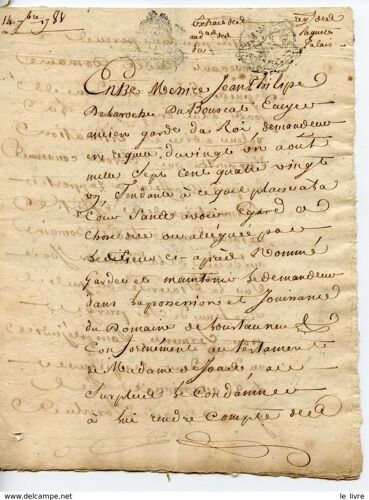 14 7bre 1781
Extrait des
Entre Messire Jean Philipe
Deharoche Du Bouscat Ecuyer
ancien garde du Roi, demandeur
en requete du vingt un aout
mille Sept cent quatre vingt
Tendante à ce qu'il plaise a la
Cour Sans avoir Egard a
Chose dite ou alleguée par
le deffendeur ci-après Nommé
Garder et maintenir le demandeur
dans la possession et Jouissance
du Domaine de
Conformément au testament
de Madame de
Surplus le Condamner
à lui rendre Compte des
le livre